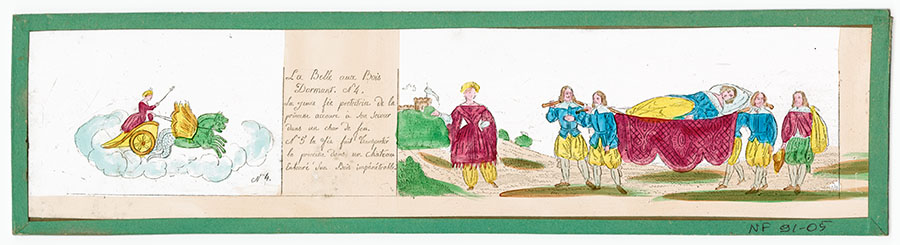 La Belle aux Bois
Dormant. N°4.
La jeune fée protectrice de la
princesse accourt à son secour
dans un char de feu.
N°5 la fée fait transporter
la princesse dans un Chateau
entouré d'un Bois impénétrable
N°4.
NF 91-05